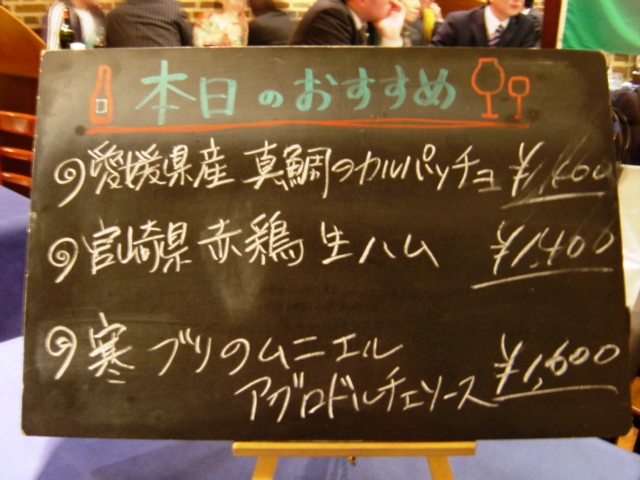 本日のおすすめ
愛媛県産 真鯛のカルパッチョ ¥1,400
宮崎県 赤鶏 生ハム ¥1,400
寒ブリのムニエル
アグロドルチェソース ¥1,600